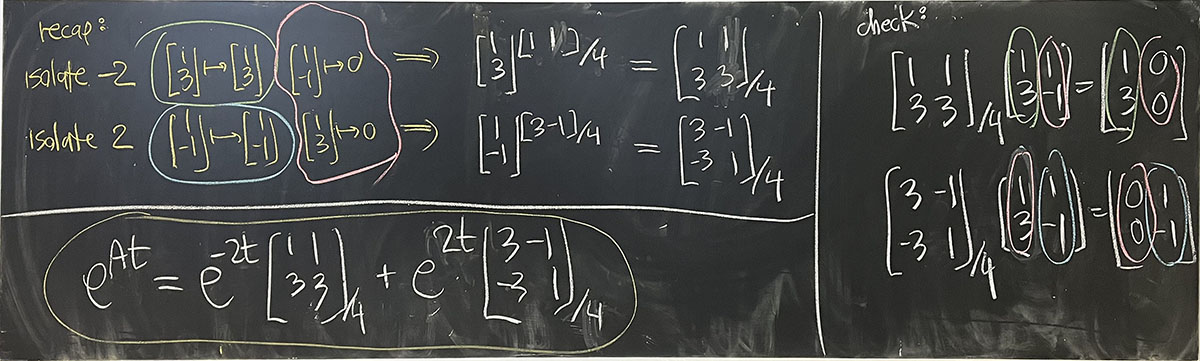 recap:
isolate -2 [1 3] ↦ [1 3] [1 -1] ↦ 0 ⇒ [1 3][1 1]/4 = [1 1; 3 3]/4
isolate 2 [1 -1] ↦ [1 -1] [1 3] ↦ 0 ⇒ [1 -1][3 -1]/4 = [3 -1; -3 1]/4
e^{At} = e^{-2t} [1 1; 3 3]/4 + e^{2t} [3 -1; -3 1]/4
check:
[1 1; 3 3]/4 [1 1; 3 -1] = [1 0; 3 0]
[3 -1; -3 1]/4 [1 1; 3 -1] = [0 1; 0 -1]